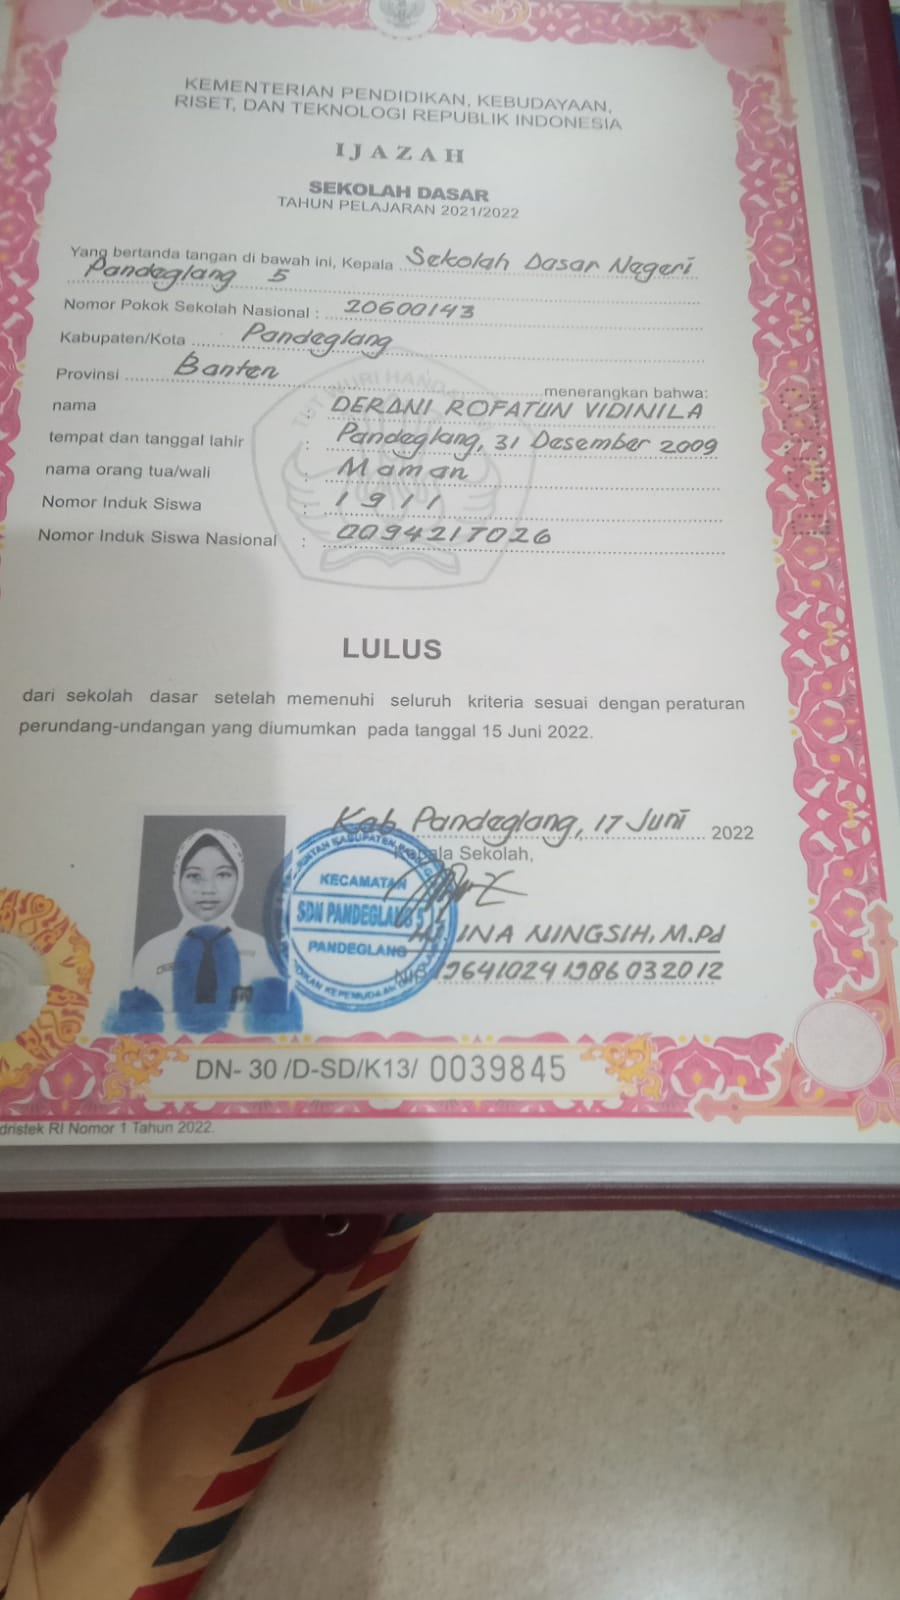 KEMENTERIAN PENDIDIKAN, KEBUDAYAAN,
RISET, DAN TEKNOLOGI REPUBLIK INDONESIA
IJAZAH
SEKOLAH DASAR
TAHUN PELAJARAN 2021/2022
Yang bertanda tangan di bawah ini, Kepala Sekolah Dasar Negeri
Pandeglang 5
Nomor Pokok Sekolah Nasional : 20600143
Kabupaten/Kota Pandeglang
Provinsi Banten menerangkan bahwa:
nama : DERANI ROFATUN VIDINILA
tempat dan tanggal lahir : Pandeglang, 31 Desember 2009
nama orang tua/wali : Maman
Nomor Induk Siswa : 1911
Nomor Induk Siswa Nasional : 0094217026
LULUS
dari sekolah dasar setelah memenuhi seluruh kriteria sesuai dengan peraturan
perundang-undangan yang diumumkan pada tanggal 15 Juni 2022.
Kab Pandeglang, 17 Juni 2022
Kepala Sekolah,
KECAMATAN
SDN PANDEGLANG 5
PANDEGLANG
Hj INA NINGSIH, M.Pd
NIP 196410241986032012
DN- 30 /D-SD/K13/ 0039845
dristek RI Nomor 1 Tahun 2022.